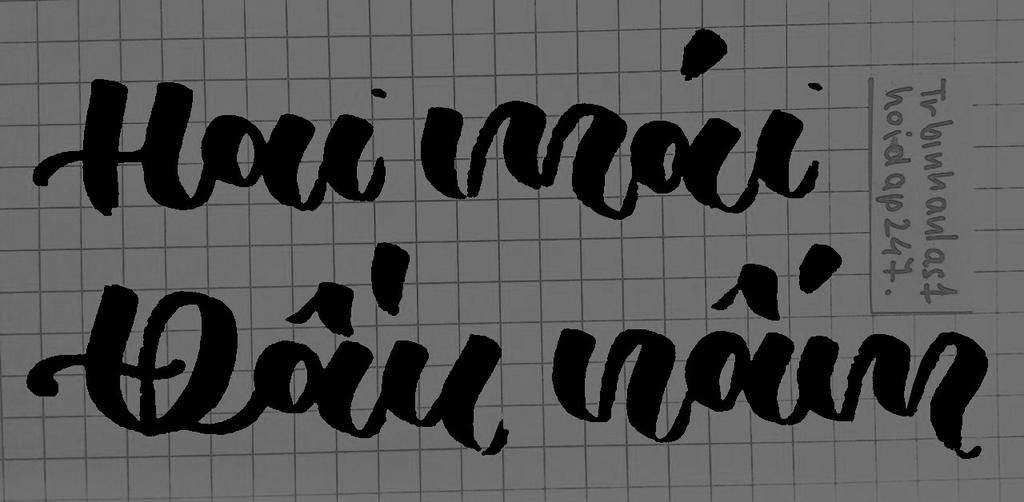 Hai mái
Đầu nấm
Trbinhanlast
hoidap247.